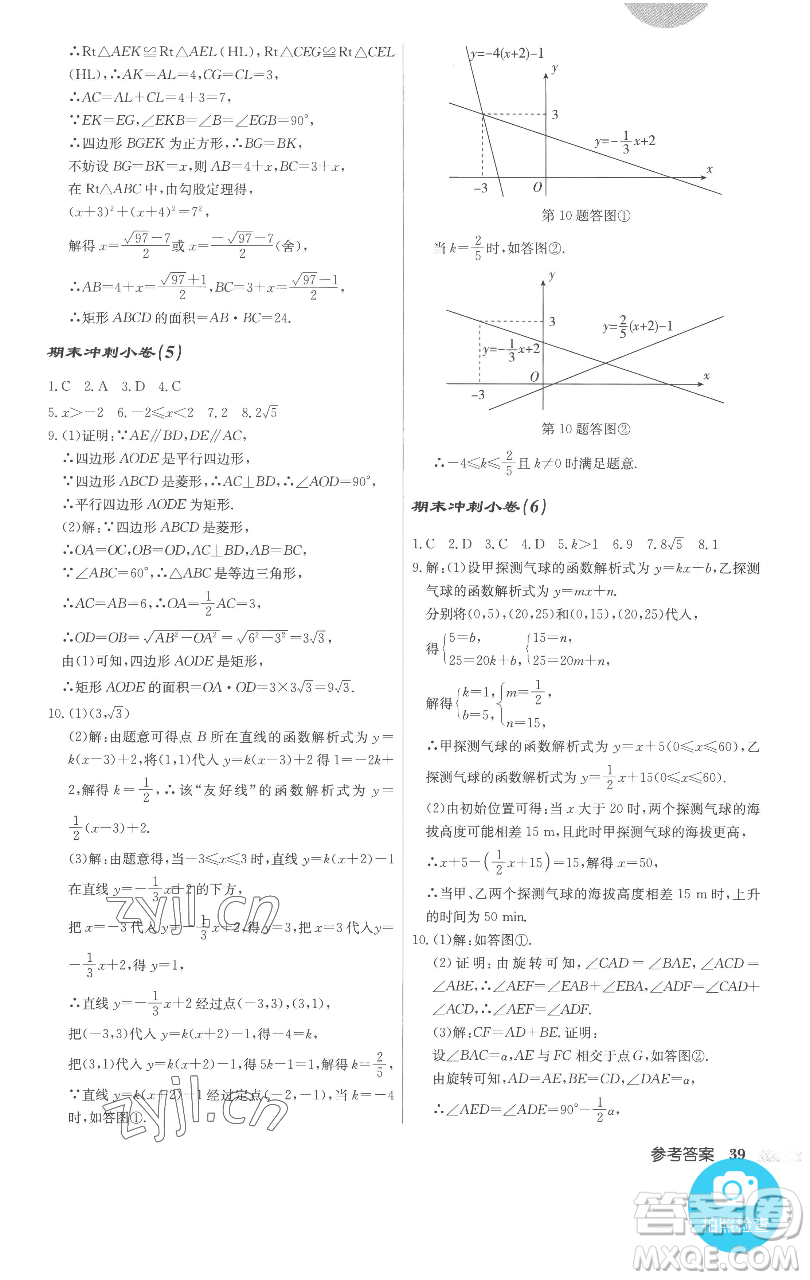 ∴Rt△AEK≌Rt△AEL(HL),Rt△CEG≌Rt△CEL
(HL),∴AK=AL=4,CG=CL=3,
∴AC=AL+CL=4+3=7,
∵EK=EG,∠EKB=∠B=∠EGB=90°,
∴四边形BGEK为正方形,∴BG=BK,
不妨设BG=BK=x,则AB=4+x,BC=3+x,
在Rt△ABC中,由勾股定理得,
(x+3)²+(x+4)²=7²,
解得x=(√97-7)/2或x=(-√97-7)/2(舍),
∴AB=4+x=(√97+1)/2,BC=3+x=(√97-1)/2,
∴矩形ABCD的面积=AB·BC=24.
期末冲刺小卷(5)
1.C 2.A 3.D 4.C
5.x>-2 6.-2≤x<2 7.2 8.2√5
9.(1)证明:∵AE∥BD,DE∥AC,
∴四边形AODE是平行四边形,
∵四边形ABCD是菱形,∴AC⊥BD,∴∠AOD=90°,
∴平行四边形AODE为矩形.
(2)解:∵四边形ABCD是菱形,
∴OA=OC,OB=OD,AC⊥BD,AB=BC,
∵∠ABC=60°,∴△ABC是等边三角形,
∴AC=AB=6,∴OA=1/2AC=3,
∴OD=OB=√(AB²-OA²)=√(6²-3²)=3√3,
由(1)可知,四边形AODE是矩形,
∴矩形AODE的面积=OA·OD=3×3√3=9√3.
10.(1)(3,√3)
(2)解:由题意可得点B所在直线的函数解析式为y=
k(x-3)+2,将(1,1)代入y=k(x-3)+2得1=-2k+
2,解得k=1/2,∴该“友好线”的函数解析式为y=
1/2(x-3)+2.
(3)解:由题意得,当-3≤x≤3时,直线y=k(x+2)-1
在直线y=-1/3x+2的下方,
把x=-3代入y=-1/3x+2得y=3,把x=3代入y=
-1/3x+2,得y=1,
∴直线y=-1/3x+2经过点(-3,3),(3,1),
把(-3,3)代入y=k(x+2)-1,得-4=k,
把(3,1)代入y=k(x+2)-1,得5k-1=1,解得k=2/5,
∵直线y=k(x+2)-1经过定点(-2,-1),当k=-4
时,如答图①.
y=-4(x+2)-1
y
3
y=-1/3x+2
x
-3
O
第10题答图①
当k=2/5时,如答图②.
y
3
y=2/5(x+2)-1
y=-1/3x+2
x
O
-3
第10题答图②
∴-4≤k≤2/5且k≠0时满足题意.
期末冲刺小卷(6)
1.C 2.D 3.C 4.D 5.k>1 6.9 7.8√5 8.1
9.解:(1)设甲探测气球的函数解析式为y=kx+b,乙探测
气球的函数解析式为y=mx+n.
分别将(0,5),(20,25)和(0,15),(20,25)代入,
得{5=b, 25=20k+b, {15=n, 25=20m+n,
解得{k=1, b=5, {m=1/2, n=15,
∴甲探测气球的函数解析式为y=x+5(0≤x≤60),乙
探测气球的函数解析式为y=1/2x+15(0≤x≤60).
(2)由初始位置可得:当x大于20时,两个探测气球的海
拔高度可能相差15 m,且此时甲探测气球的海拔更高,
∴x+5-(1/2x+15)=15,解得x=50,
∴当甲、乙两个探测气球的海拔高度相差15 m时,上升
的时间为50 min.
10.(1)解:如答图①.
(2)证明:由旋转可知,∠CAD=∠BAE,∠ACD=
∠ABE,∴∠AEF=∠EAB+∠EBA,∠ADF=∠CAD+
∠ACD,∴∠AEF=∠ADF.
(3)解:CF=AD+BE.证明:
设∠BAC=α,AE与FC相交于点G,如答图②.
由旋转可知,AD=AE,CD=BE,∠DAE=α,
∴∠AED=∠ADE=90°-1/2α,
参考答案 39
zyjl.cn
zyjl.cn
答案卷
拍照检查
MXQE.COM